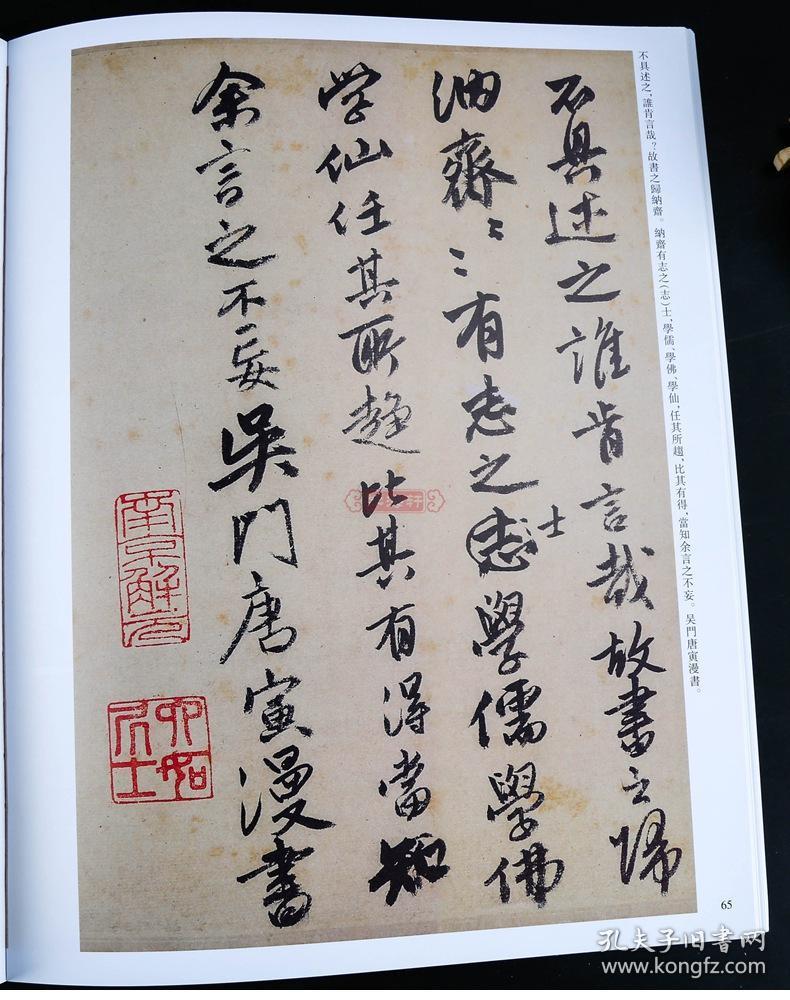 不具述之誰肯言哉故書之歸
納齋〻〻有志之志士學儒學佛
学仙任其所趨比其有得當知
余言之不妄吳門唐寅漫書
南京解元
六如居士
不具述之，誰肯言哉？故書之歸納齋。納齋有志之（志）士，學儒、學佛、學仙，任其所趨，比其有得，當知余言之不妄。吳門唐寅漫書。
65
孔夫子旧书网
www.kongfz.com